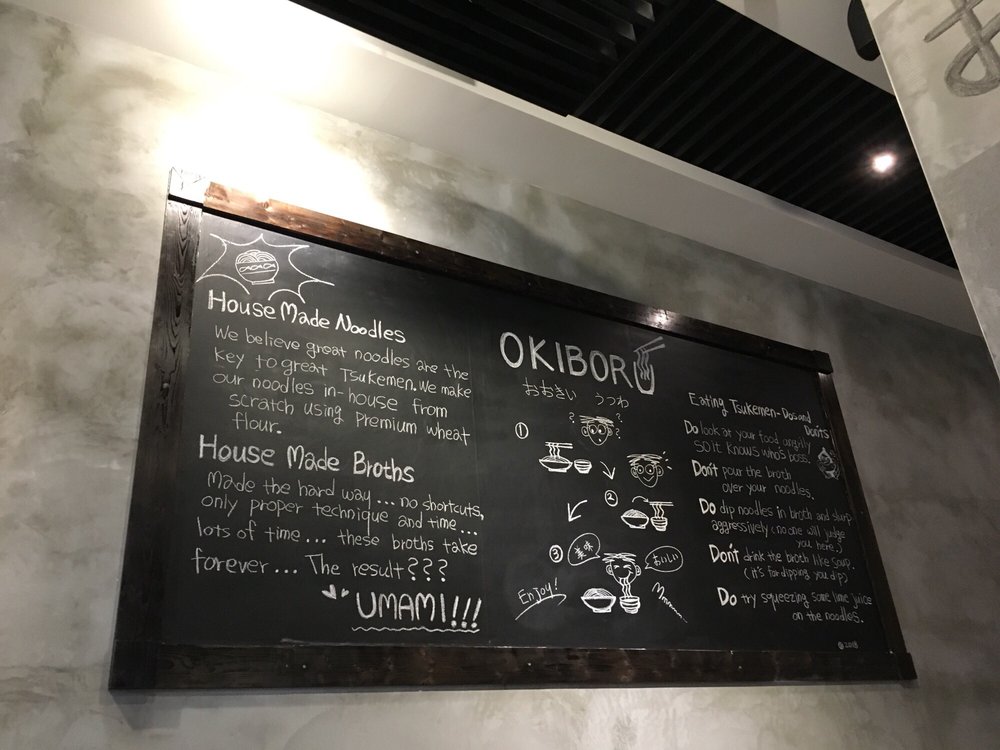 House Made Noodles
We believe great noodles are the
key to great Tsukemen. We make
our noodles in-house from
scratch using Premium wheat
flour.
House Made Broths
Made the hard way... no shortcuts,
only proper technique and time...
lots of time... these broths take
forever... The result???
UMAMI!!!
OKIBORU
おおきい うつわ
? ? ? ?
①
②
③
美味
おいしい
Enjoy!
Eating Tsukemen - Dos and
Don'ts
Do look at your food angrily
so it knows who's boss.
Don't pour the broth
over your noodles.
Do dip noodles in broth and slurp
aggressively (no one will judge
you here.)
Don't drink the broth like soup.
(it's for dipping you dip)
Do try squeezing some lime juice
on the noodles.
©2018